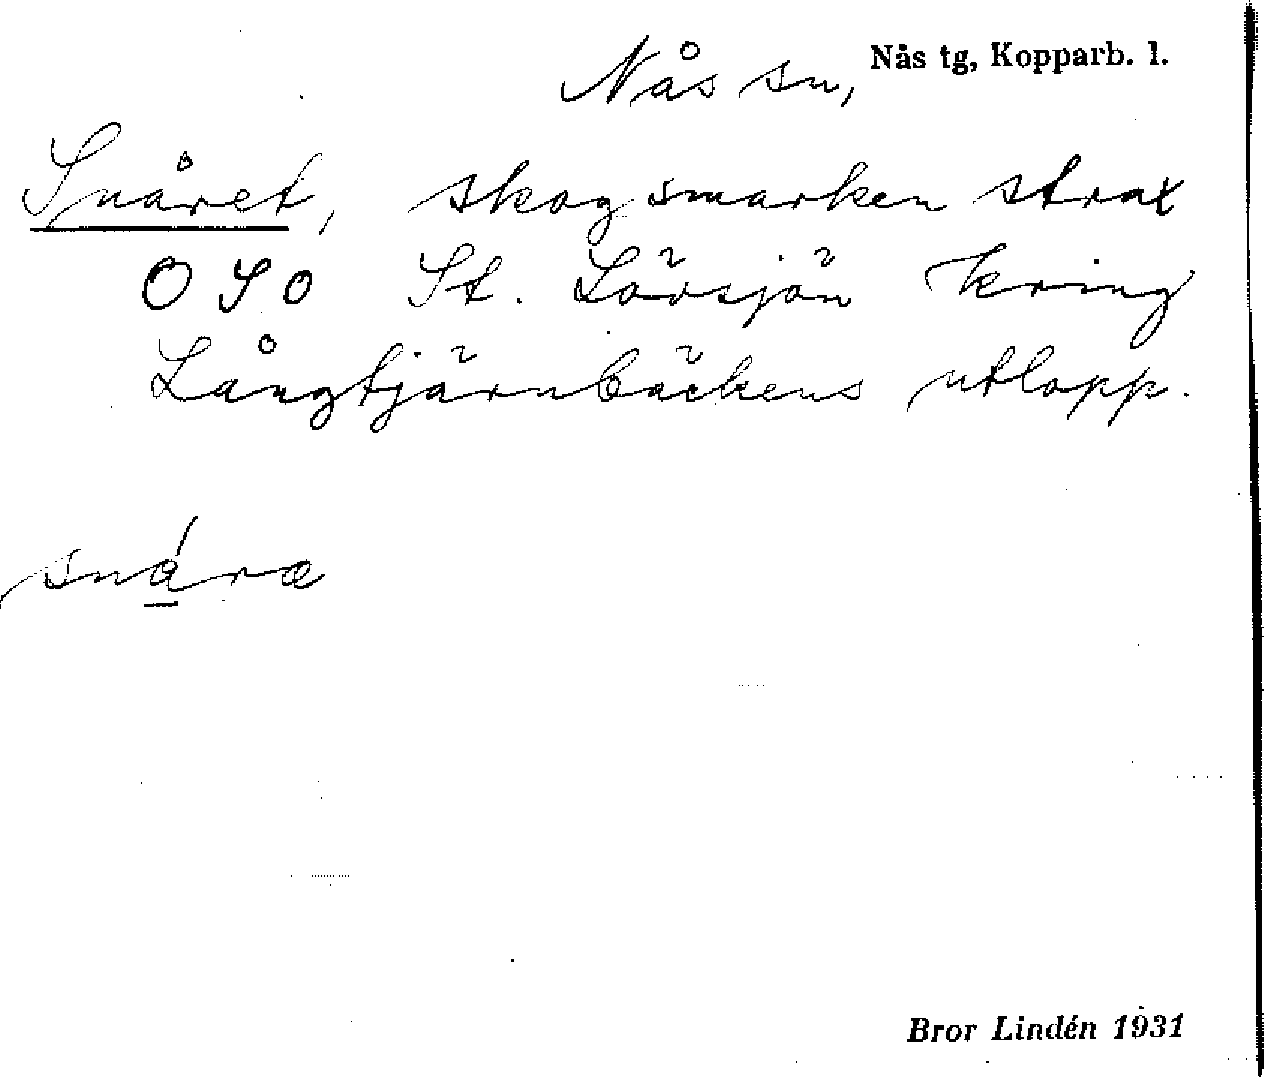 Nås sn, Nås tg, Kopparb. l.
Snåret, skogsmarken strax
O S O St. Lövsjön kring
Långtjärnbäckens utlopp.
snára
Bror Lindén 1931